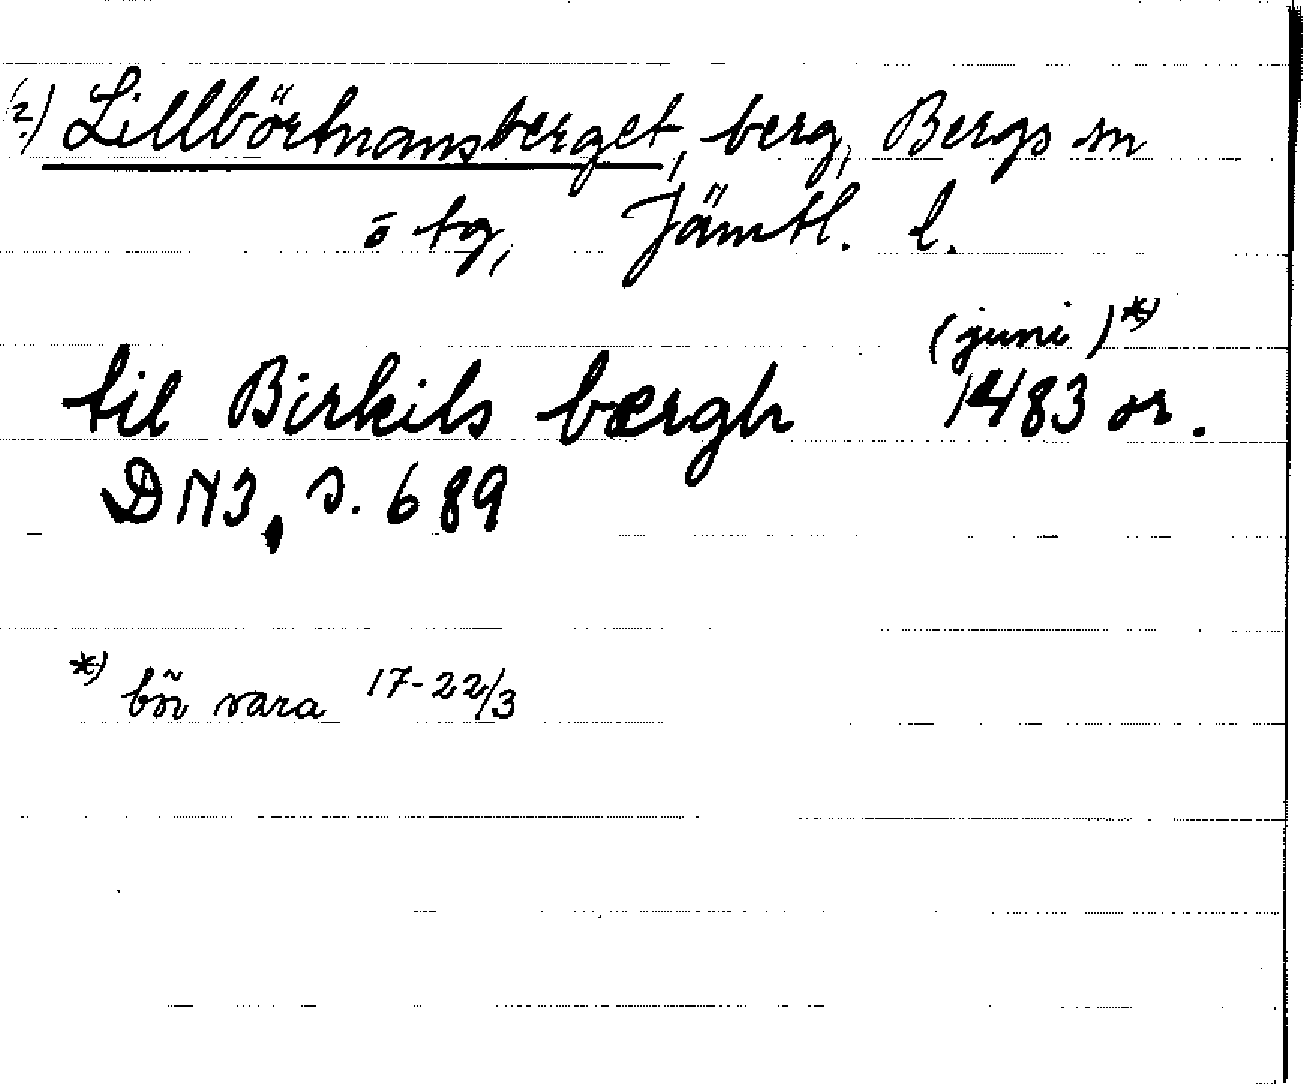 (?) Lillbörtnansberget, berg, Bergs sn
ö tg, Jämtl. l.
(juni)*)
til Birkils bærgh 1483 or.
DN3, s. 689
*) bör vara 17-22/3